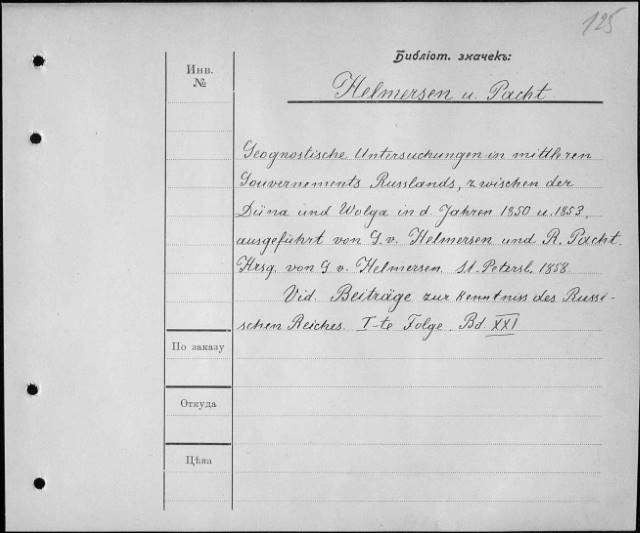 125
Библіот. значекъ:
Инв.
№
Helmersen u. Pacht
Geognostische Untersuchungen in mittleren
Gouvernements Russlands, zwischen der
Düna und Wolga in d. Jahren 1850 u. 1853,
ausgeführt von G. v. Helmersen und R. Pacht.
Hrsg. von G v. Helmersen. St. Petersb. 1858.
Vid. Beiträge zur Kenntniss des Russi-
schen Reiches. I-te Folge. Bd. XXI
По заказу
Откуда
Цѣна